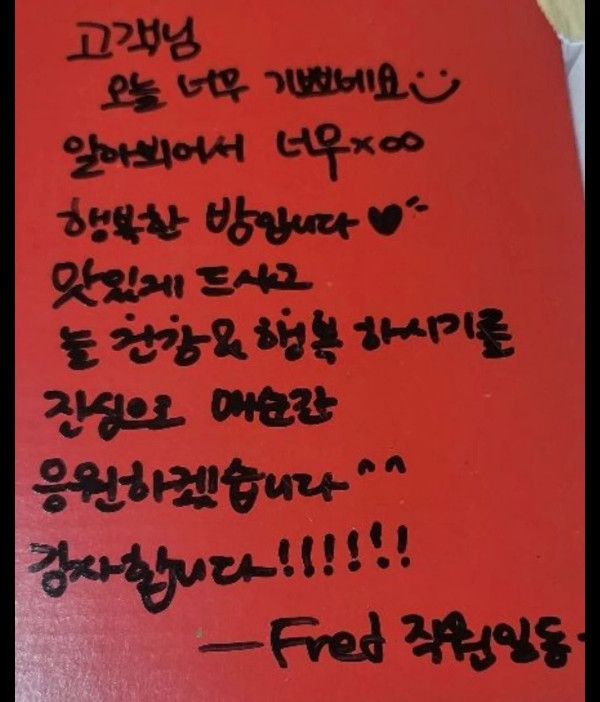 고객님
오늘 너무 기쁘네요
알아뵈어서 너무×∞
행복한 밤입니다 ♥
맛있게 드시고
늘 건강 & 행복 하시기를
진심으로 매순간
응원하겠습니다^^
감사합니다!!!!!!
—Fred 직원일동-